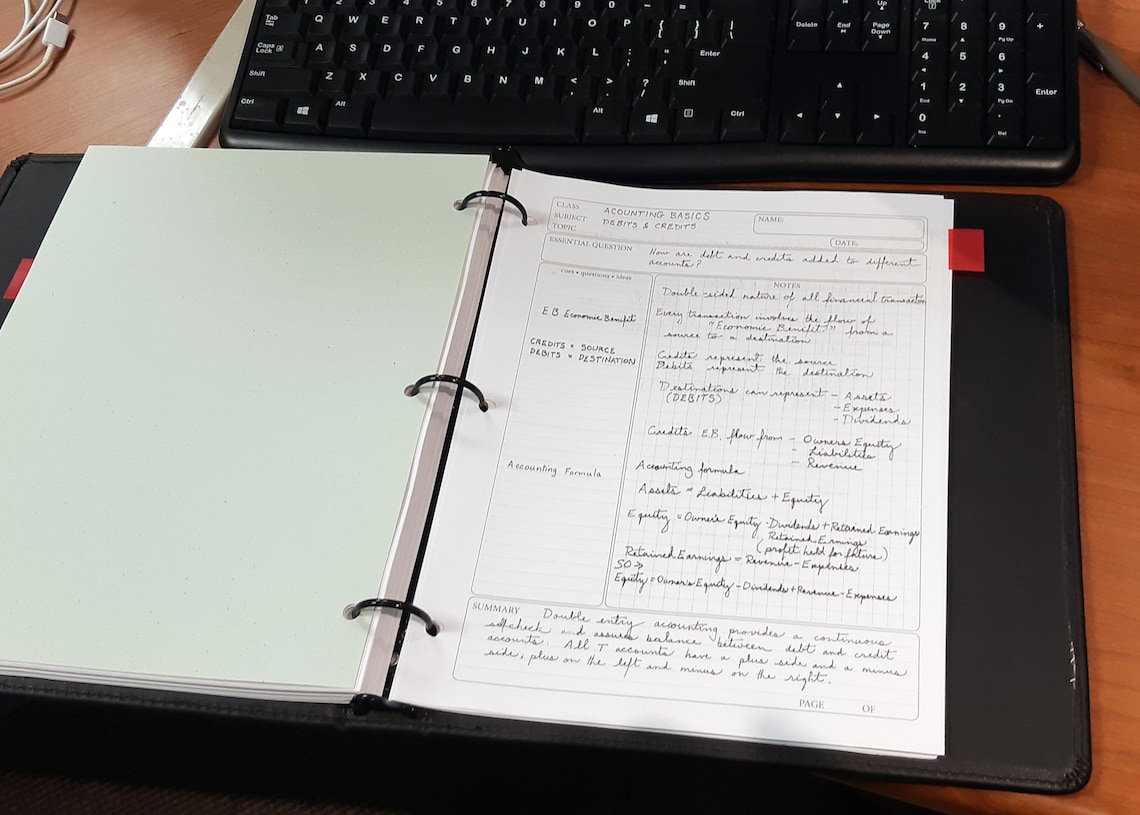 Tab Q W E R T Y U I O P { } |
Caps Lock A A S D F G H J K L : ; " ' Enter
Shift Z X C V B N M < , > . ? / Shift
Ctrl Alt Alt Ctrl
7 8 9 0 - =
Up
Delete End Page Down
7 8 9 +
Home Pg Up
4 5 6
1 2 3 Enter
End Pg Dn
0 .
Ins Del
CLASS ACOUNTING BASICS
SUBJECT DEBITS & CREDITS
TOPIC
NAME:
DATE:
ESSENTIAL QUESTION How are debt and credits added to different
accounts?
cues • questions • ideas
E B Economic Benifit
CREDITS = SOURCE
DEBITS = DESTINATION
Accounting Formula
NOTES
Double-sided nature of all financial transaction
Every transaction involves the flow of
"Economic Benifit" from a
source to a destination
Credits represent the source
Debits represent the destination
Destinations can represent - Assets
(DEBITS) - Expenses
- Dividends
Credits E.B. flow from - Owners Equity
- Liabilities
- Revenue
Accounting formula
Assets = Liabilities + Equity
Equity = Owner's Equity - Dividends + Retained Earnings
Retained Ernings
(profit held for future)
Retained Earnings = Revenue - Expenses
SO →
Equity = Owner's Equity - Dividends + Revenue - Expenses
SUMMARY Double entry accounting provides a continuous
selfcheck and assures balance between debt and credit
accounts. All T accounts have a plus side and a minus
side, plus on the left and minus on the right.
PAGE OF